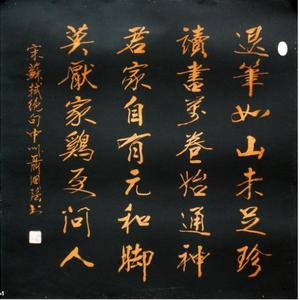 退筆如山未足珍
讀書萬卷始通神
君家自有元和脚
莫厭家鷄更問人
宋蘇軾絕句中州